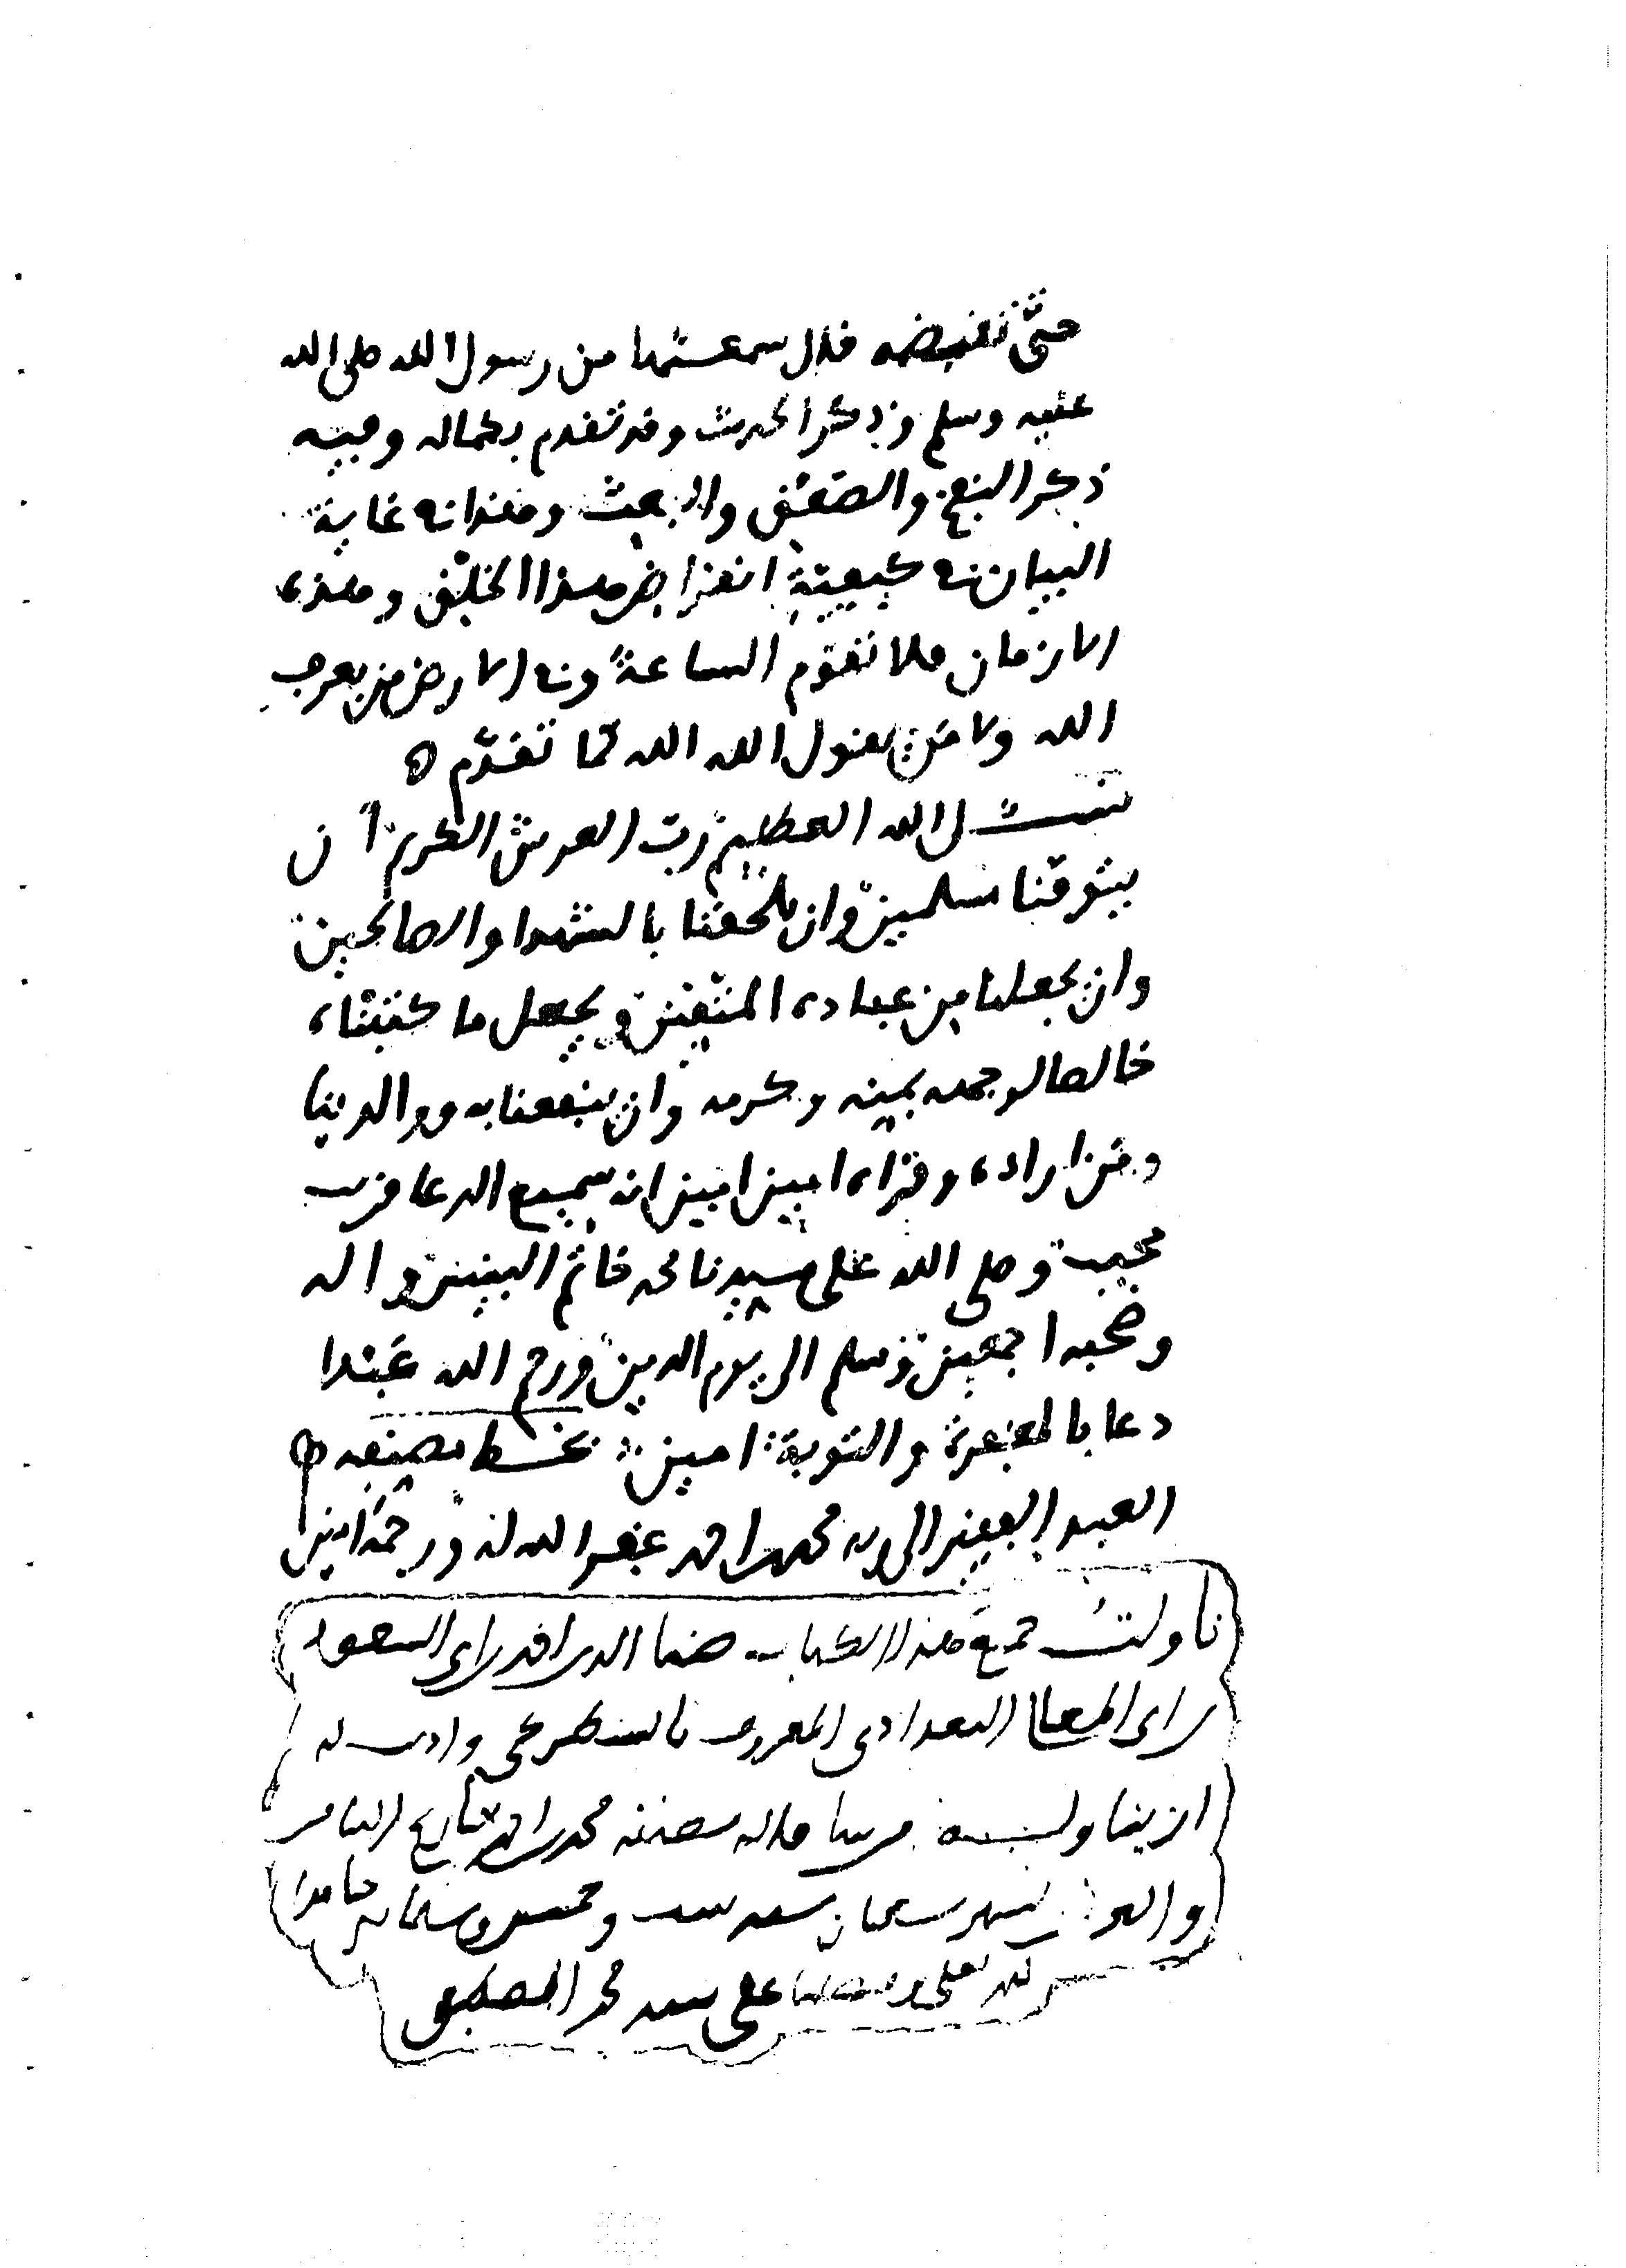 حتى تقبضه قال سمعتها من رسول الله صلى الله
عليه وسلم وذكر الحديث وقد تقدم بكماله وفيه
ذكر النفخ والصعق والبعث وهذا في غاية
البيان في كيفية انقراض هذا الخلق وهذه
الازمان فلا تقوم الساعة وفي الارض من يعرف
الله ولا من يقول الله الله كما تقدم ه
نسئل الله العظيم رب العرش الكريم أن
يتوفنا مسلمين وان يلحقنا بالشهدا والصالحين
وان يجعلنا من عباده المتقين ويجعل ما كتبناه
خالصا لوجهه بمنه وكرمه وان ينفعنا به ووالدينا
ومن اراده وقراه امين امين انه سميع الدعا قريب
مجيب وصلى الله على سيدنا محمد خاتم النبيين واله
وصحبه اجمعين وسلم الى يوم الدين ورحم الله عبدا
دعا بالمغفرة والتوبة امين بخط مصنفه
العبد الفقير الى ربه محمد بن احمد غفر الله له ورحمه امين
ناولت جميع هذا الكتاب ضيا الدين احمد بن ابى السعود
بن ابى المعالى البغدادى المعروف بالسطرنجى واذنت له
ان يناوله من شا قاله مصنفه محمد بن احمد بتاريخ الثامن
والعشرين لشهر شعبان سنة ست وخمسين وستمائة حامدا
لله تعلى ومصليا على سيدنا محمد المصطفى